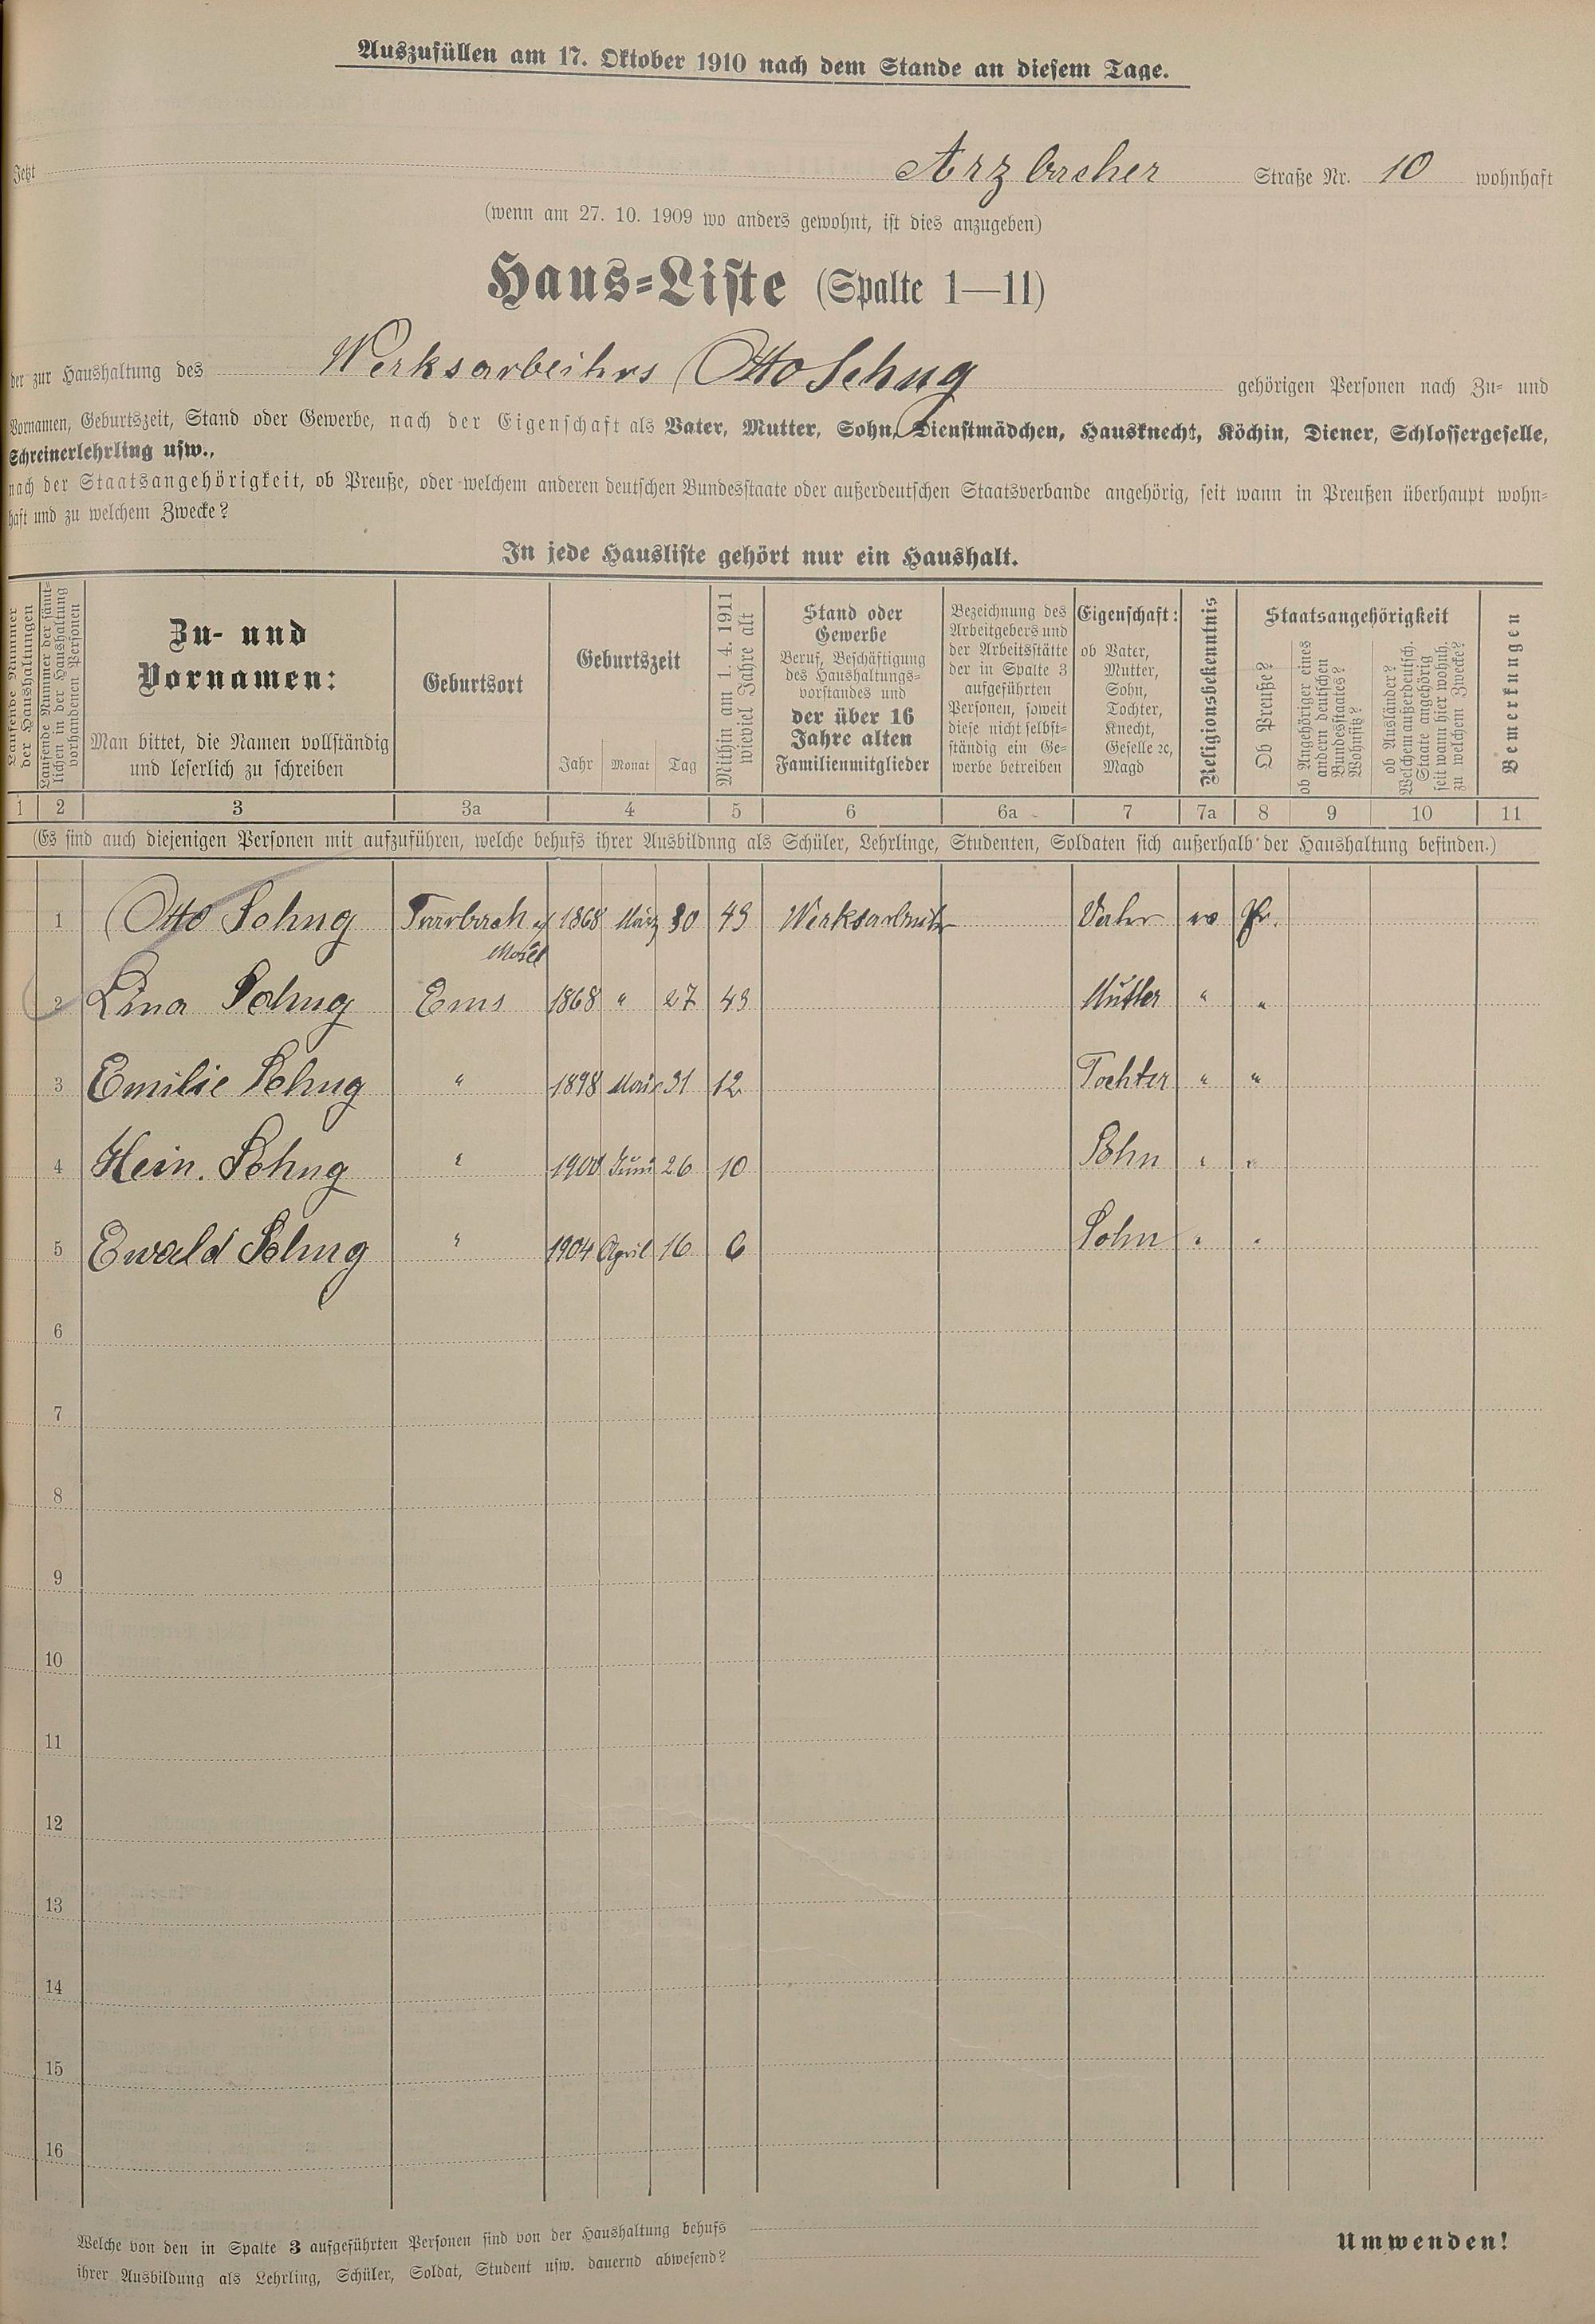 Auszufüllen am 17. Oktober 1910 nach dem Stande an diesem Tage.
Jetzt Arzbacher Straße Nr. 10 wohnhaft
(wenn am 27. 10. 1909 wo anders gewohnt, ist dies anzugeben)
Haus-Liste (Spalte 1—11)
der zur Haushaltung des Werksarbeiters Otto Schug gehörigen Personen nach Zu- und
Vornamen, Geburtszeit, Stand oder Gewerbe, nach der Eigenschaft als Vater, Mutter, Sohn, Dienstmädchen, Hausknecht, Köchin, Diener, Schlossergeselle,
Schreinerlehrling usw.,
nach der Staatsangehörigkeit, ob Preuße, oder welchem anderen deutschen Bundesstaate oder außerdeutschen Staatsverbande angehörig, seit wann in Preußen überhaupt wohn-
haft und zu welchem Zwecke?
In jede Hausliste gehört nur ein Haushalt.
Laufende Nummer
der Haushaltungen
Laufende Nummer der sämt-
lichen in der Haushaltung
vorhandenen Personen
Zu- und
Vornamen:
Man bittet, die Namen vollständig
und leserlich zu schreiben
Geburtsort
Geburtszeit
Jahr Monat Tag
Mithin am 1. 4. 1911
wieviel Jahre alt
Stand oder
Gewerbe
Beruf, Beschäftigung
des Haushaltungs-
vorstandes und
der über 16
Jahre alten
Familienmitglieder
Bezeichnung des
Arbeitgebers und
der Arbeitsstätte
der in Spalte 3
aufgeführten
Personen, soweit
diese nicht selbst-
ständig ein Ge-
werbe betreiben
Eigenschaft:
ob Vater,
Mutter,
Sohn,
Tochter,
Knecht,
Geselle ꝛc,
Magd
Religionsbekenntnis
Staatsangehörigkeit
Ob Preuße?
ob Angehöriger eines
andern deutschen
Bundesstaates?
Wohnsitz?
ob Ausländer?
Welchem außerdeutsch.
Staate angehörig
seit wann hier wohnh.
zu welchem Zwecke?
Bemerkungen
1 2 3 3a 4 5 6 6a 7 7a 8 9 10 11
(Es sind auch diejenigen Personen mit aufzuführen, welche behufs ihrer Ausbildung als Schüler, Lehrlinge, Studenten, Soldaten sich außerhalb der Haushaltung befinden.)
1 Otto Schug Trarbach a/ 1868 März 30 43 Werksarbeiter Vater ev Pr.
Mosel
2 Lina Schug Ems 1868 " 27 43 Mutter " "
3 Emilie Schug " 1898 31 12 Tochter " "
4 Hein. Schug " 1900 Juni 26 10 Sohn " "
5 Ewald Schug " 1904 April 16 6 Sohn " "
6
7
8
9
10
11
12
13
14
15
16
Welche von den in Spalte 3 aufgeführten Personen sind von der Haushaltung behufs
ihrer Ausbildung als Lehrling, Schüler, Soldat, Student usw. dauernd abwesend?
Umwenden!